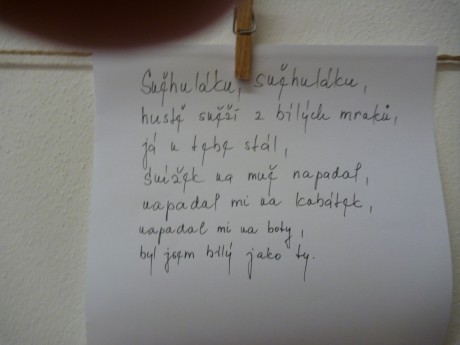 Sněhuláku, sněhuláku,
hustě sněží z bílých mraků,
já u tebe stál,
snížek na mně napadal,
napadal mi na kabátek,
napadal mi na boty,
byl jsem bílý jako ty.